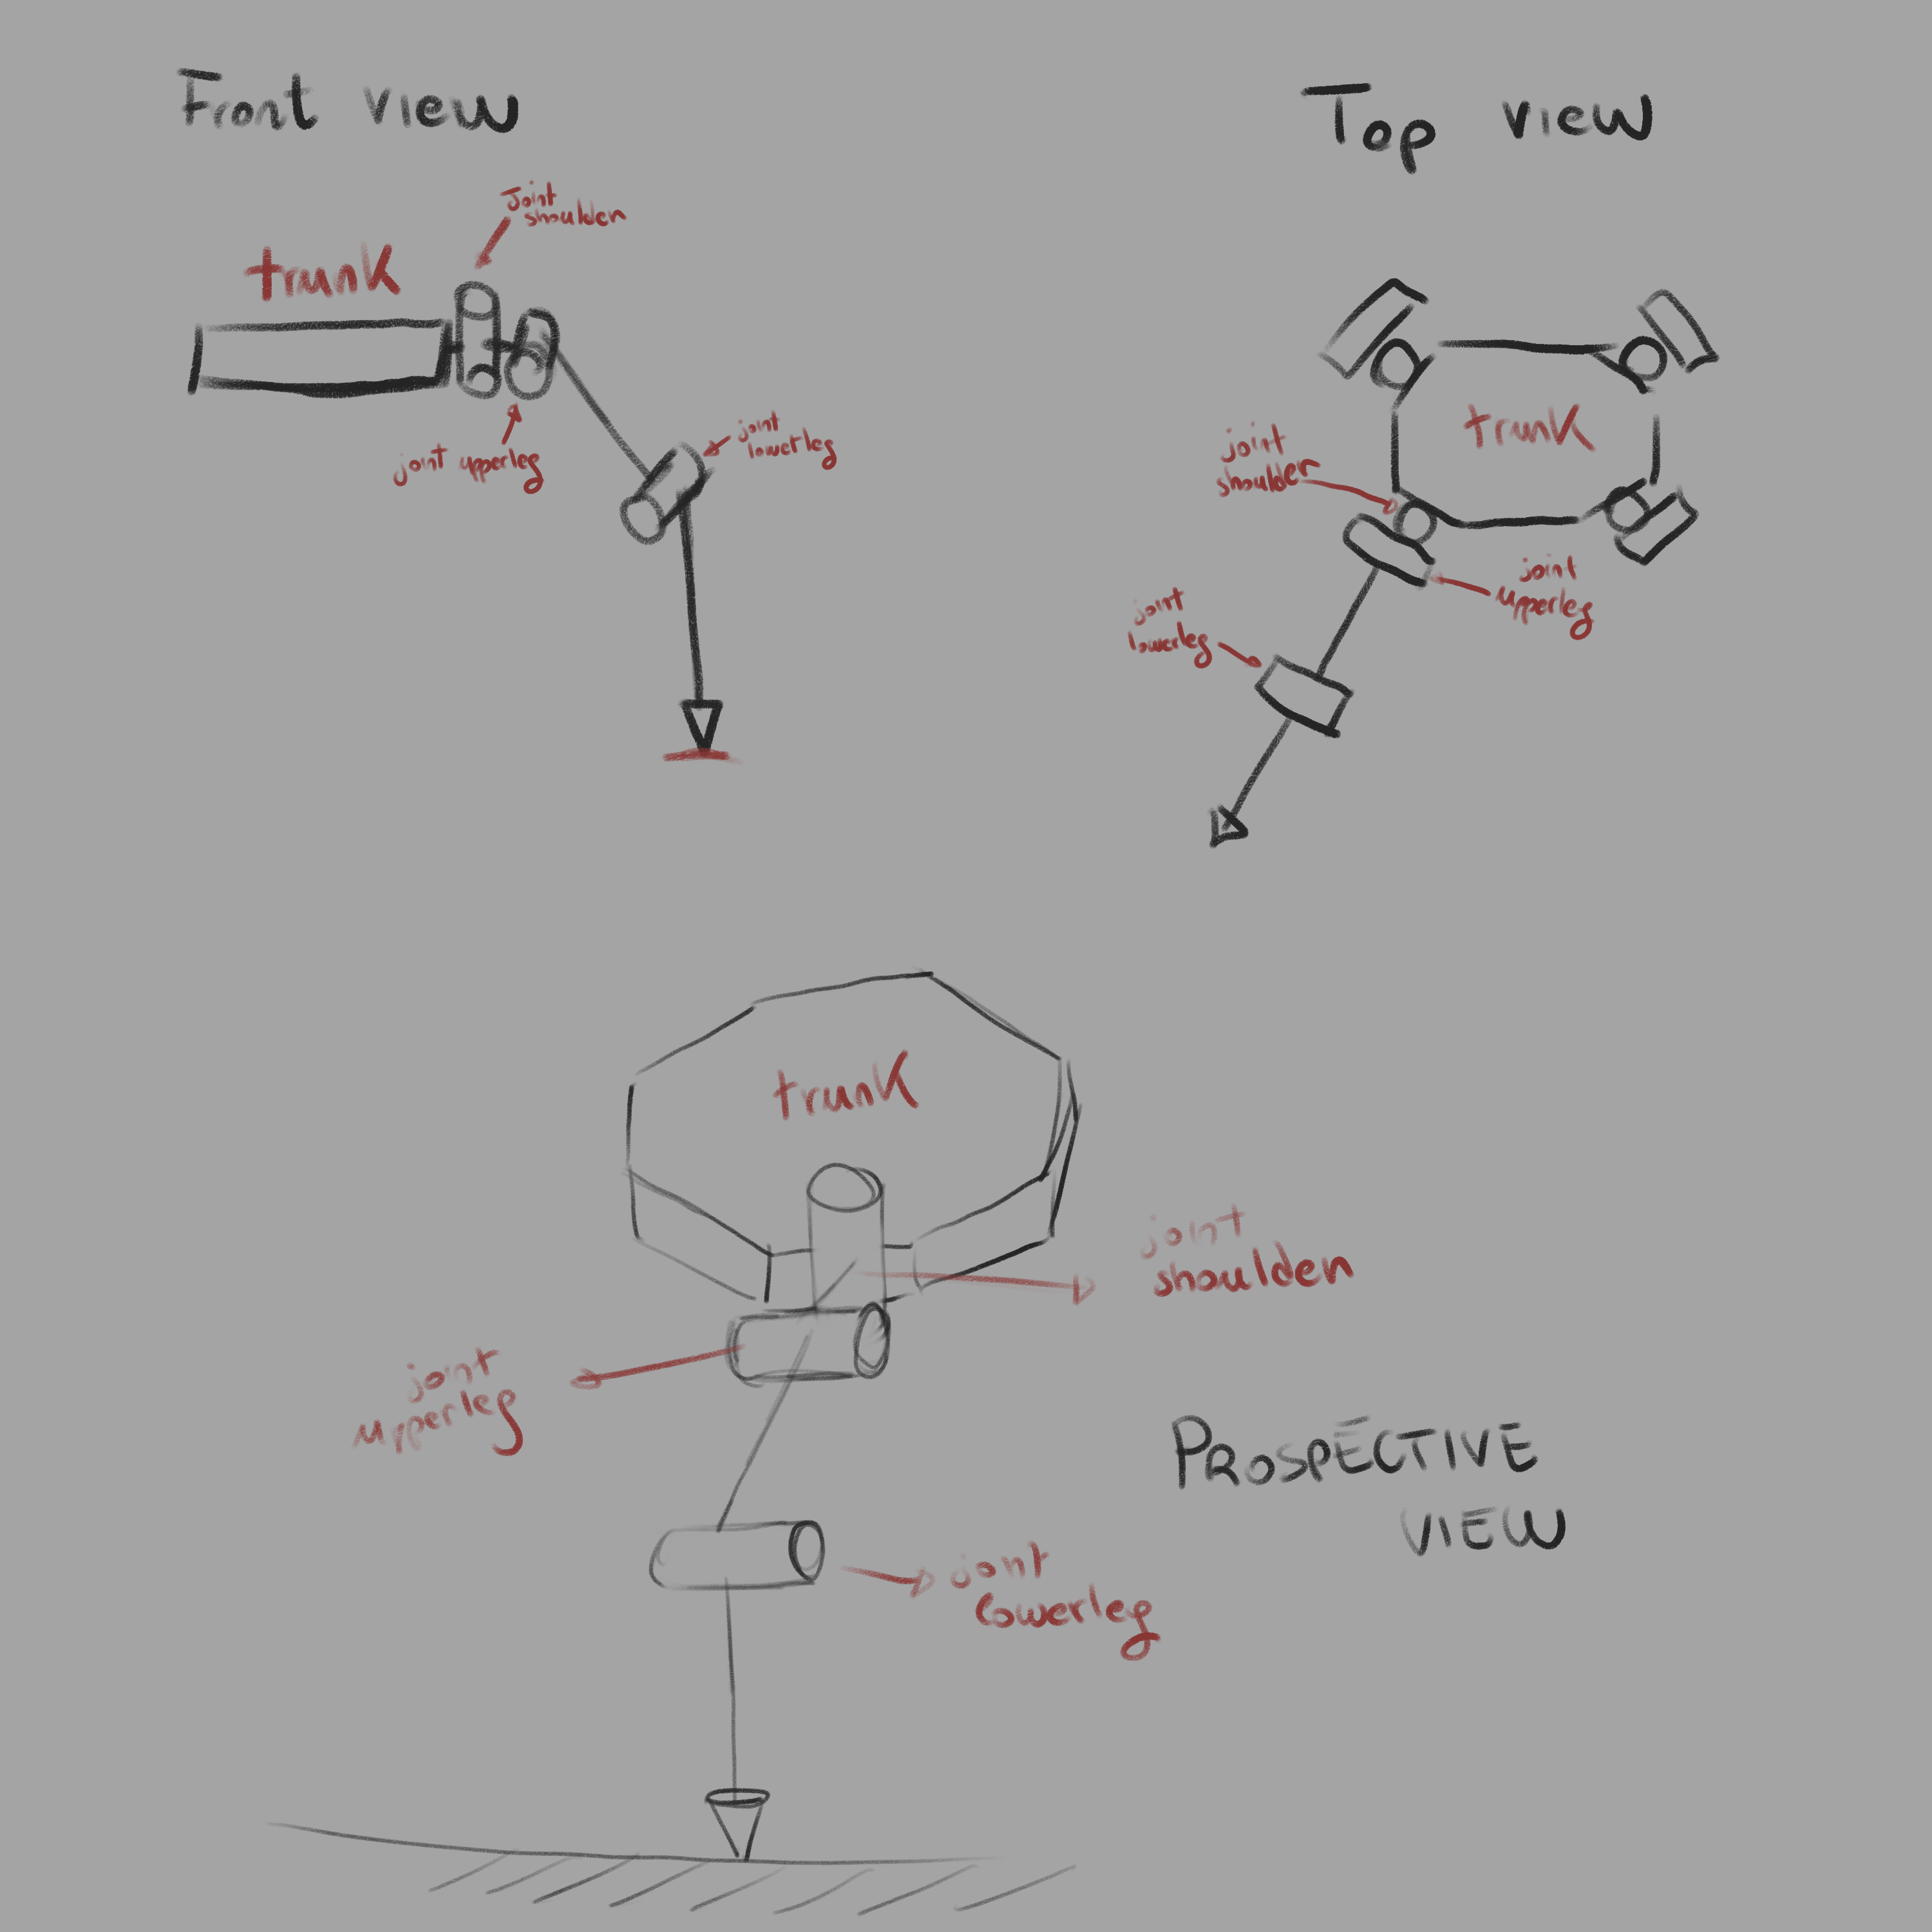 Front view
Joint
shoulder
trunk
joint upperleg
joint
lowerleg
Top view
trunk
joint
shoulder
joint
upperleg
joint
lowerleg
trunk
joint
shoulder
joint
upperleg
PROSPECTIVE
VIEW
joint
Lowerleg